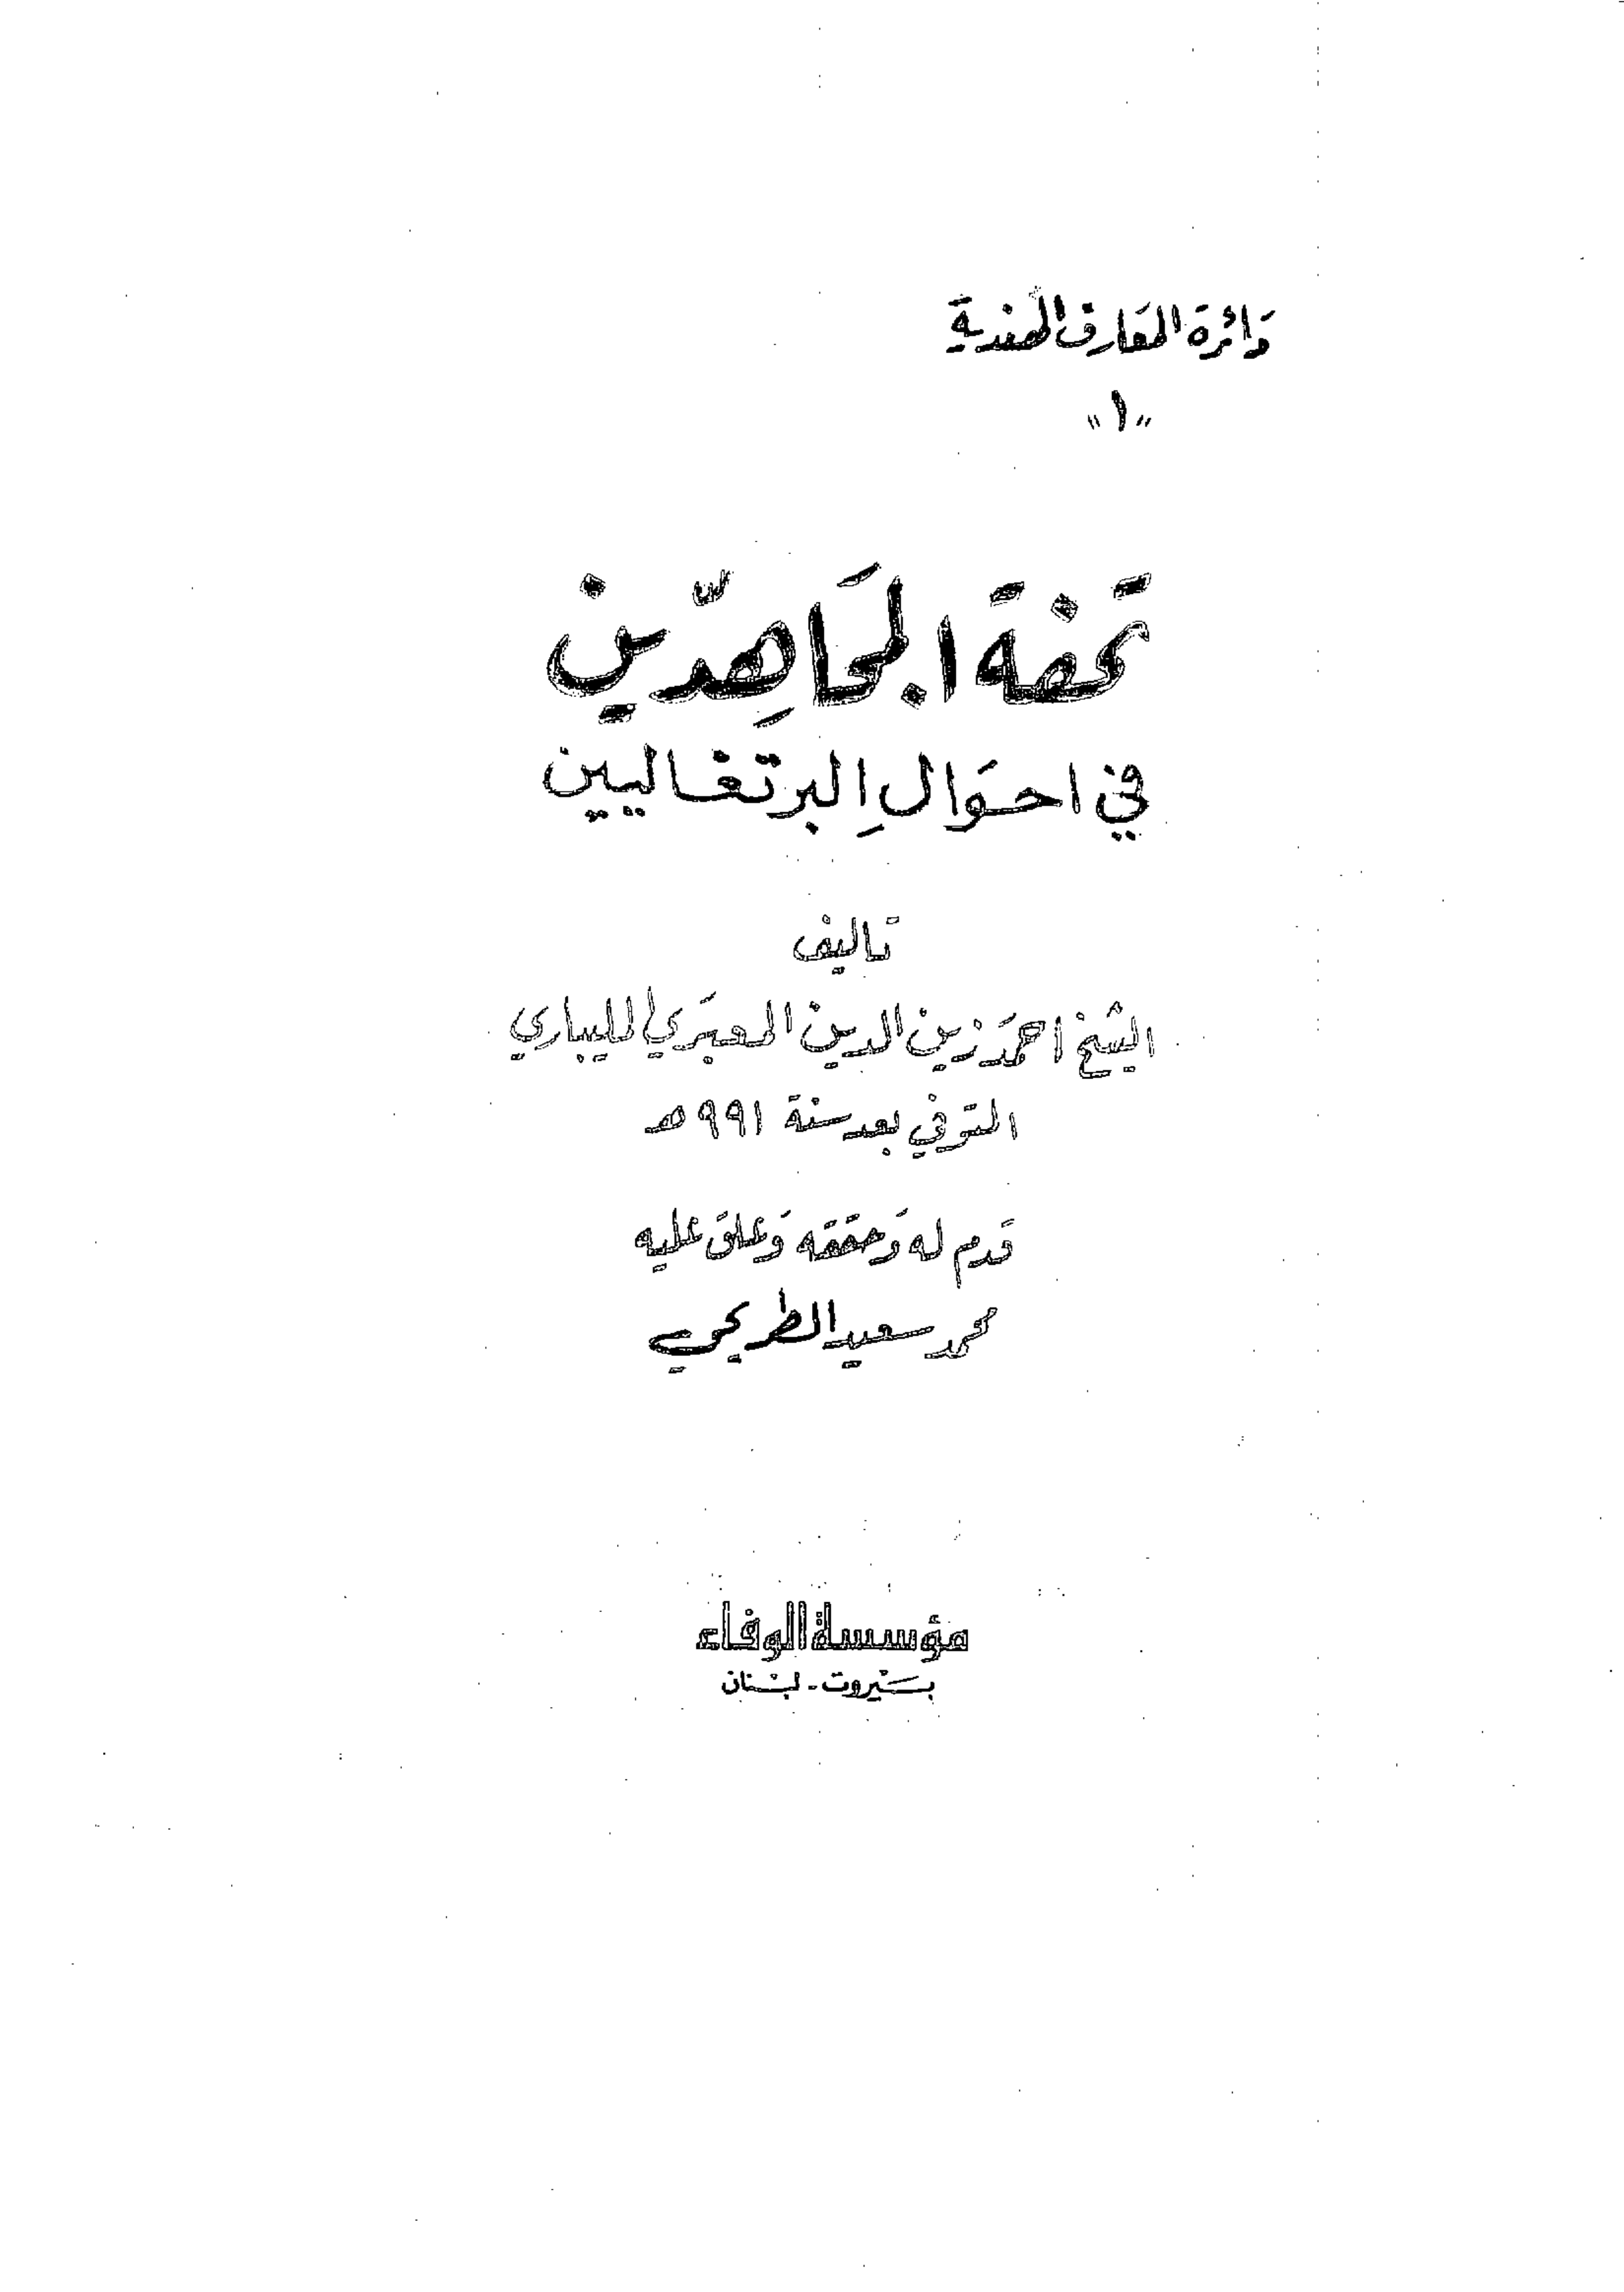 دَائرة المعَارف الهندية
"١"
تحفَة المجَاهِدّين
في احوَالِ البرتغاليين
تاليف
الشيخ احمَد زين الدين المعبَري المليباري
المتوفي بعد سنة ٩٩١ هـ
قدم له وَحققه وَعلق عليه
محمد سعيد الطريحي
مؤسسة الوفاء
بيروت - لبنان